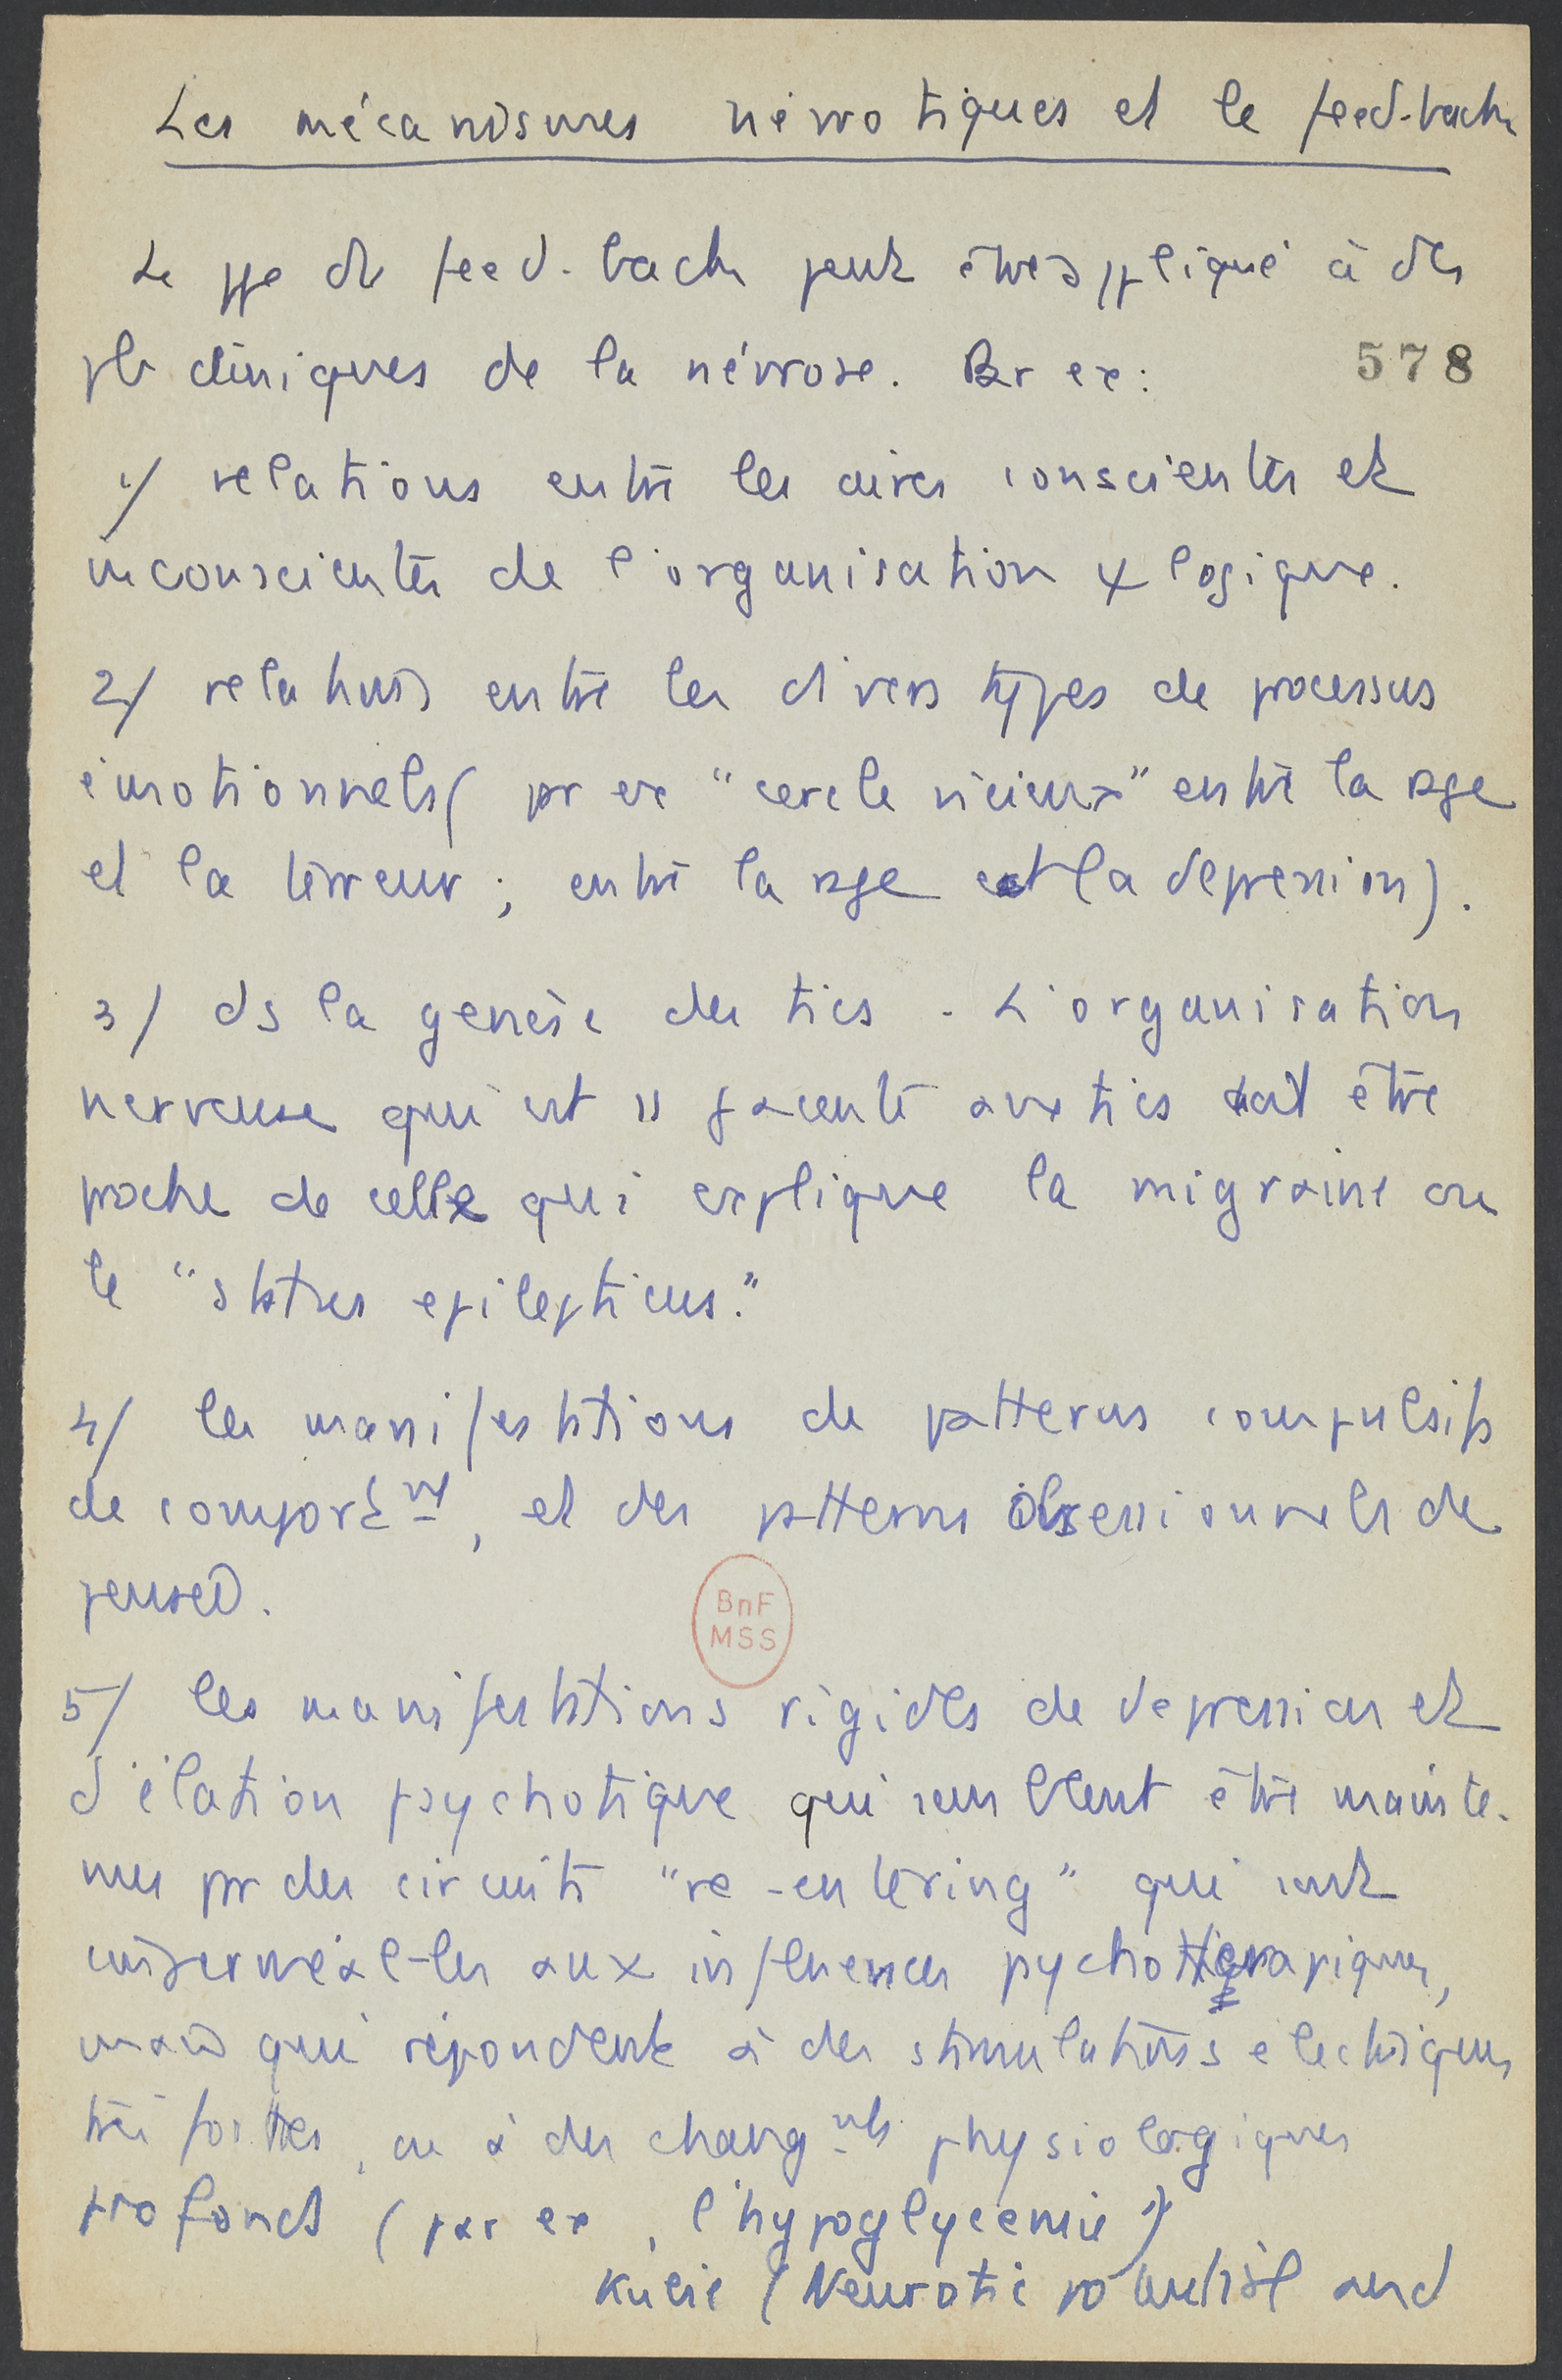 Les mécanismes névrotiques et le feed-back
Le ppe de feed-back peut être appliqué à des
pb cliniques de la névrose. Par ex:
578
1/ relations entre les aires conscientes et
inconscientes de l'organisation ψlogique.
2/ relations entre les divers types de processus
émotionnels (pr ex "cercle vicieux" entre la rage
et la terreur ; entre la rage et la depression).
3/ ds la genèse des tics. L'organisation
nerveuse qui est ss jacente aux tics doit être
proche de celle qui explique la migraine ou
le "status epilepticus."
4/ les manifestations de patterns compulsifs
de comportmt, et des patterns obsessionnels de
pensée.
BnF
MSS
5/ les manifestations rigides de depression et
d'élation psychotique qui semblent être mainte-
nues pr des circuits "re-entering" qui sont
imperméables aux influences pychothérapiques,
mais qui répondent à des stimulations electriques
très fortes, ou à des changmts physiologiques
profonds (par ex, l'hypoglycemie)
Kubie (Neurotic potential and